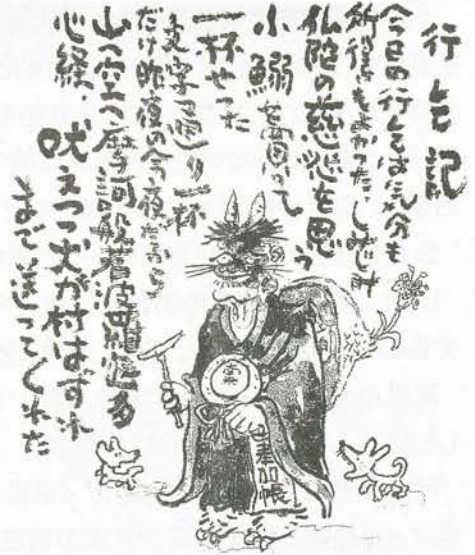 行乞記
今日の行乞は気分も
所得もよかった、しみじみ
仏陀の慈悲を思う
小鰯を買って
一杯やった
文字通り一杯
だけ昨夜の今夜だから
山へ空へ摩訶般若波羅蜜多
心経
吠えつつ犬が村はずれ
まで送ってくれた
奉加帳